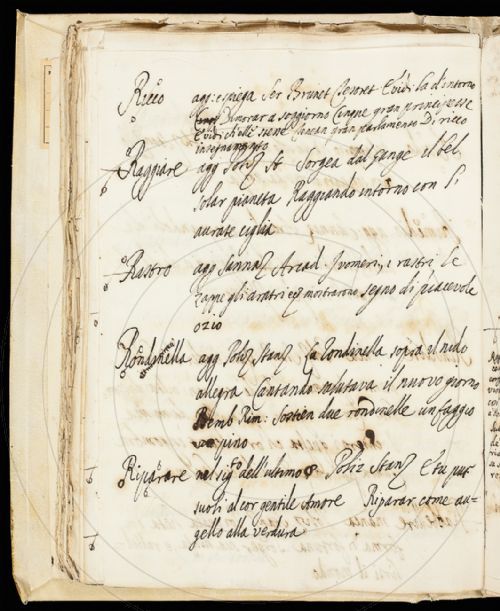 Ricco agg: e spiega Ser Brunet Tesoret E vidi la d'intorno
Dimorar a soggiorno Cinque gran principesse
E vidi ch'elle stesse tenean gran parlamento Di ricco
insegnamento
Raggiare agg Poliz St Sorgea dal Gange il bel
solar pianeta Raggiando intorno con l'
aurate ciglia
Rastro agg Sannaz Arcad I vomeri, i rastri le
zappe gli aratri etc mostrarono segno di piacevole
ozio
Rondinella agg Poliz Stanz La rondinella sopra il nido
allegra Cantando salutava il nuovo giorno
Bemb Rim: Sostien due rondinelle un faggio
pino
Riparare nel sigto dell'ultimo § Poliz Stanz E tu pur
suoli al cor gentile Amore Riparar come au=
gello alla verdura